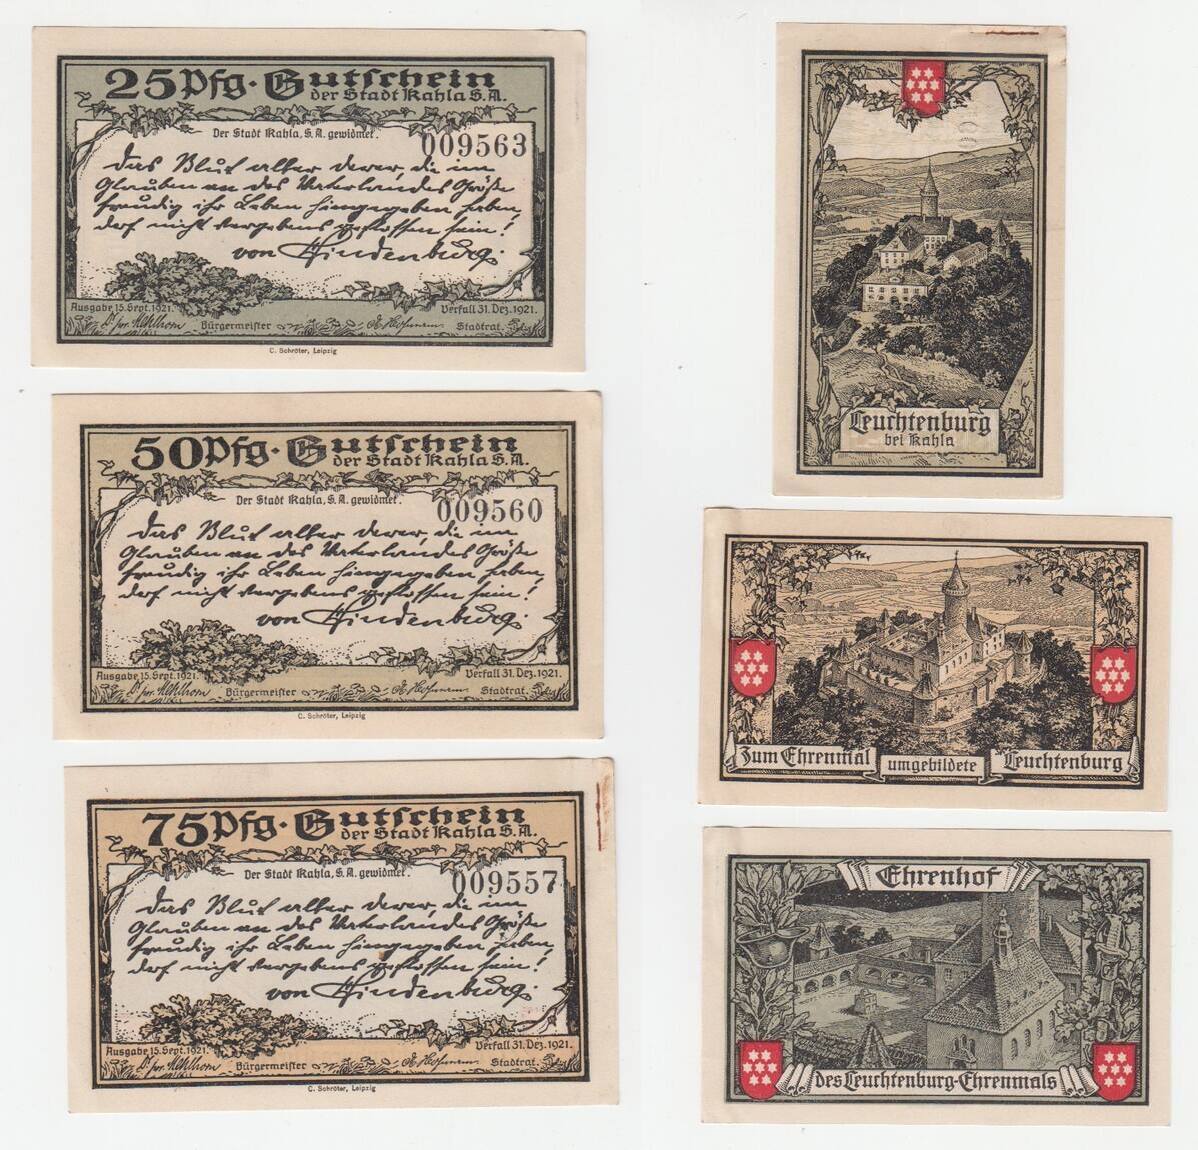 25 Pfg. Gutschein
der Stadt Kahla S.A.
Der Stadt Kahla, S.A. gewidmet.
009563
Das Blut aller derer, die im
Glauben an des Vaterlandes Größe
freudig ihr Leben hingegeben haben,
darf nicht vergebens geflossen sein!
von Hindenburg.
Ausgabe 15. Sept. 1921.
Verfall 31. Dez. 1921.
Bürgermeister
Stadtrat.
C. Schröter, Leipzig
50 Pfg. Gutschein
der Stadt Kahla S.A.
Der Stadt Kahla, S.A. gewidmet.
009560
Das Blut aller derer, die im
Glauben an des Vaterlandes Größe
freudig ihr Leben hingegeben haben,
darf nicht vergebens geflossen sein!
von Hindenburg.
Ausgabe 15. Sept. 1921.
Verfall 31. Dez. 1921.
Bürgermeister
Stadtrat.
C. Schröter, Leipzig
75 Pfg. Gutschein
der Stadt Kahla S.A.
Der Stadt Kahla, S.A. gewidmet.
009557
Das Blut aller derer, die im
Glauben an des Vaterlandes Größe
freudig ihr Leben hingegeben haben,
darf nicht vergebens geflossen sein!
von Hindenburg.
Ausgabe 15. Sept. 1921.
Verfall 31. Dez. 1921.
Bürgermeister
Stadtrat.
C. Schröter, Leipzig
Leuchtenburg
bei Kahla
Zum Ehrenmal
umgebildete
Leuchtenburg
Ehrenhof
des Leuchtenburg-Ehrenmals